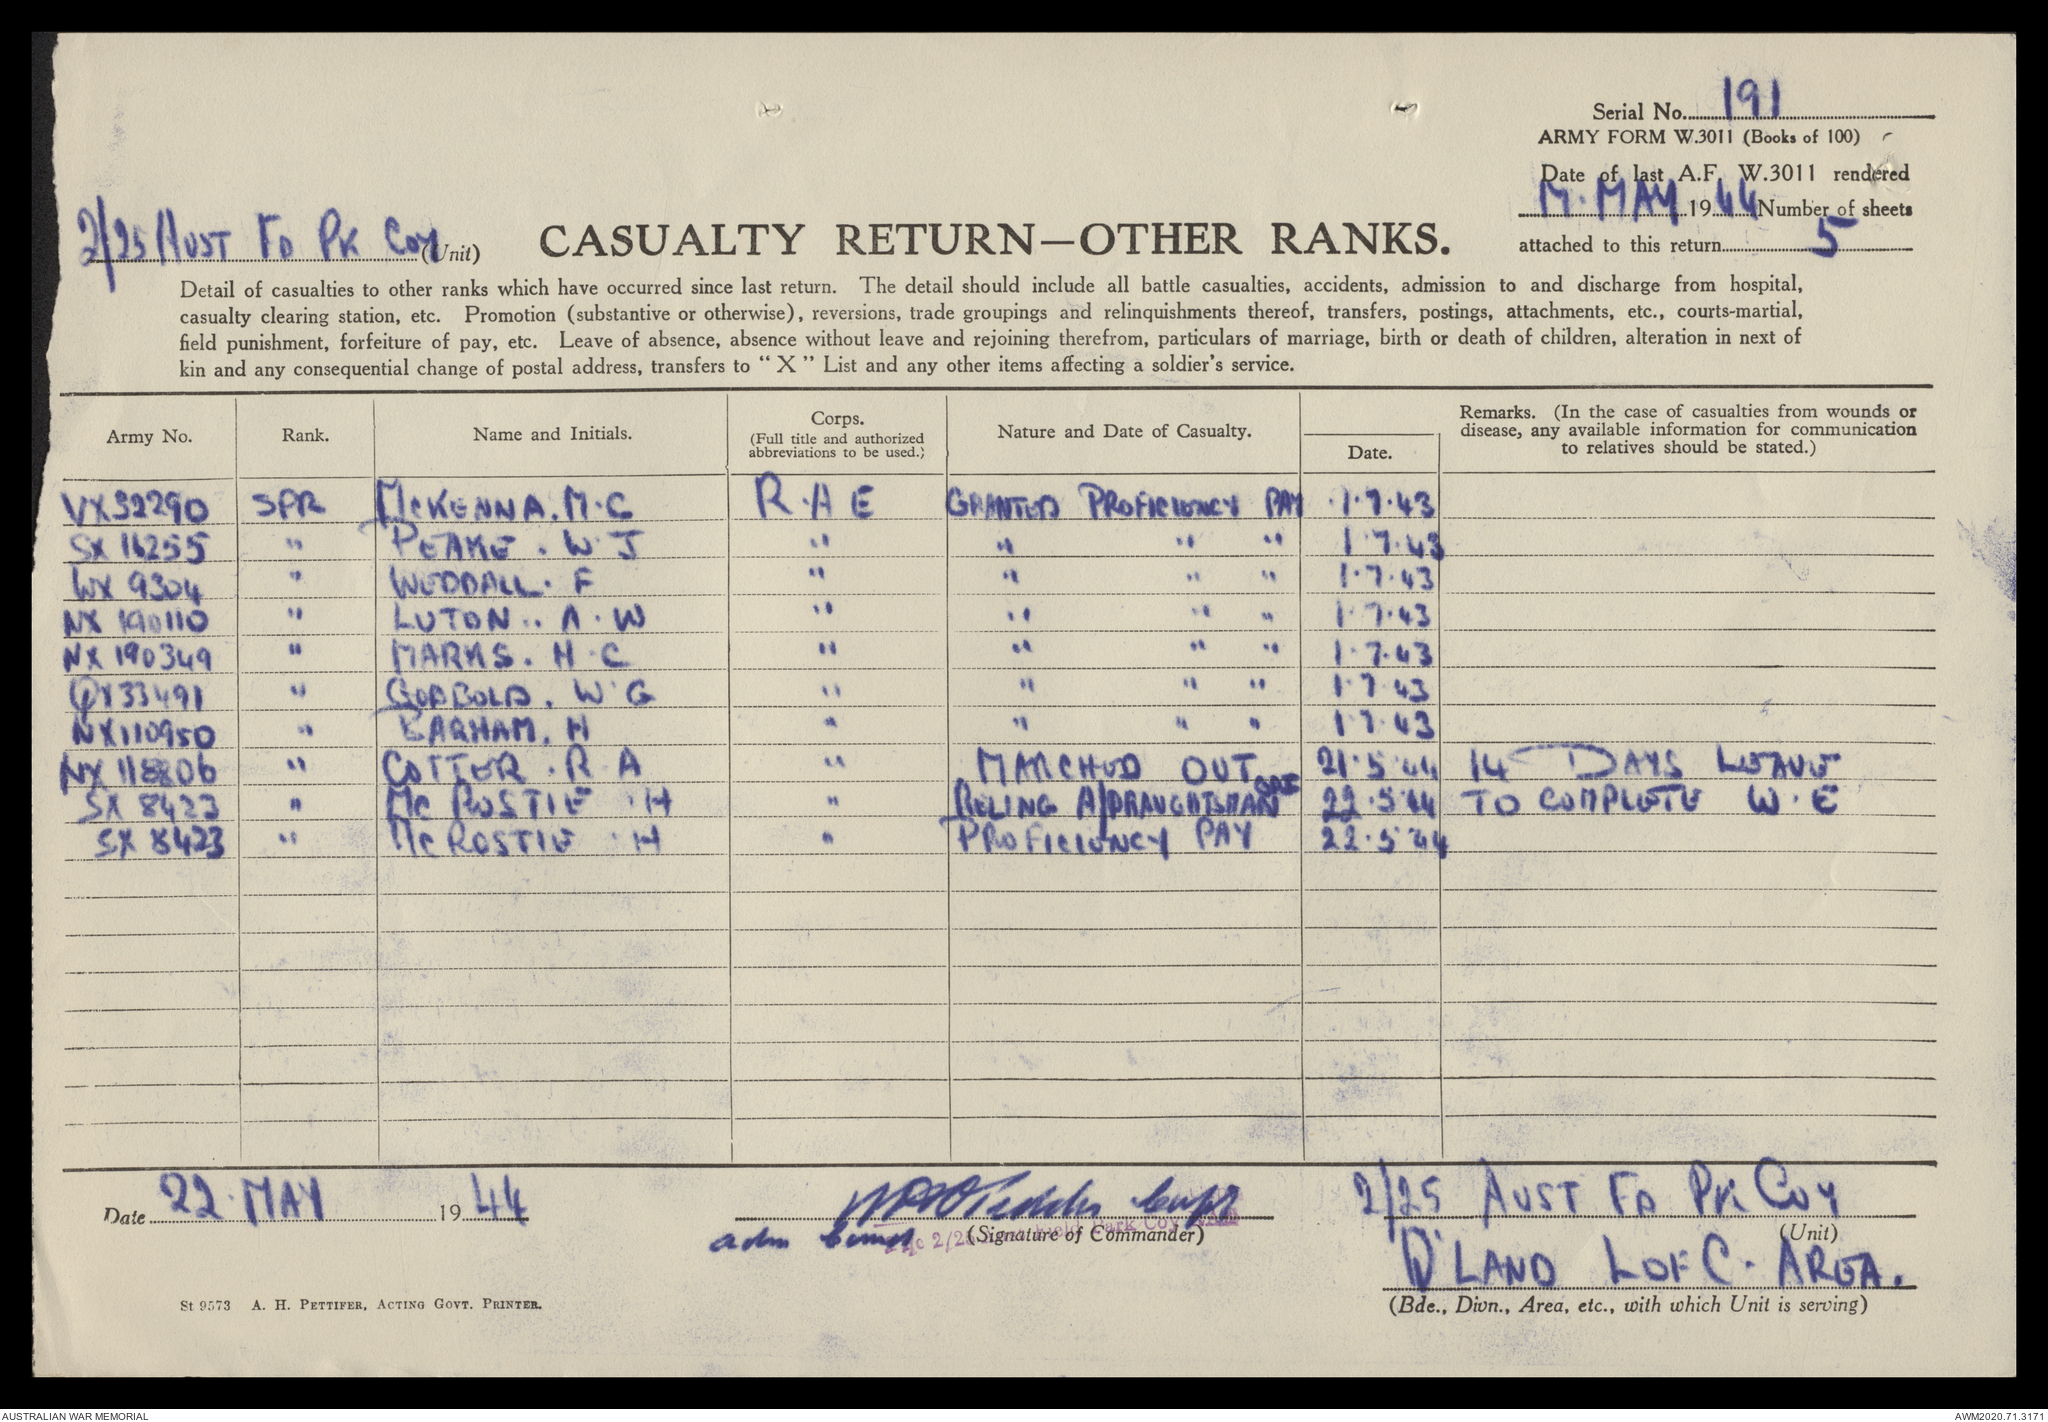 Serial No. 191
ARMY FORM W.3011 (Books of 100)
Date of last A.F. W.3011 rendered
MAY 1944 Number of sheets
attached to this return 5
2/25 AUST FD PK COY (Unit)
CASUALTY RETURN—OTHER RANKS.
Detail of casualties to other ranks which have occurred since last return. The detail should include all battle casualties, accidents, admission to and discharge from hospital,
casualty clearing station, etc. Promotion (substantive or otherwise), reversions, trade groupings and relinquishments thereof, transfers, postings, attachments, etc., courts-martial,
field punishment, forfeiture of pay, etc. Leave of absence, absence without leave and rejoining therefrom, particulars of marriage, birth or death of children, alteration in next of
kin and any consequential change of postal address, transfers to "X" List and any other items affecting a soldier's service.
Army No. Rank. Name and Initials. Corps. (Full title and authorized abbreviations to be used.) Nature and Date of Casualty. Date. Remarks. (In the case of casualties from wounds or disease, any available information for communication to relatives should be stated.)
VX52290 SPR MCKENNA. M. C R.A E GRANTED PROFICIENCY PAY 1.7.43
SX 16255 " PEAKE. W. J " " " " 1.7.43
WX 9304 " WEDDALL. F " " " " 1.7.43
NX 190110 " LUTON.. A. W " " " " 1.7.43
NX 190349 " MARKS. H. C " " " " 1.7.43
QX33491 " GODBOLD. W. G " " " " 1.7.43
NX110950 " BARHAM. H " " " " 1.7.43
NX 118806 " COTTER. R. A " MARCHED OUT 21.5.44 14 DAYS LEAVE
SX 8423 " Mc ROSTIE. H " RELING A/DRAUGHTSMAN 22.5.44 TO COMPLETE W. E
SX 8423 " Mc ROSTIE. H " PROFICIENCY PAY 22.5.44
Date 22. MAY 1944
(Signature of Commander)
2/25 AUST FD PK COY
(Unit)
Q'LAND L OF C. AREA.
(Bde., Divn., Area, etc., with which Unit is serving)
St 9573 A. H. PETTIFER, ACTING GOVT. PRINTER.
AUSTRALIAN WAR MEMORIAL
AWM2020.71.3171